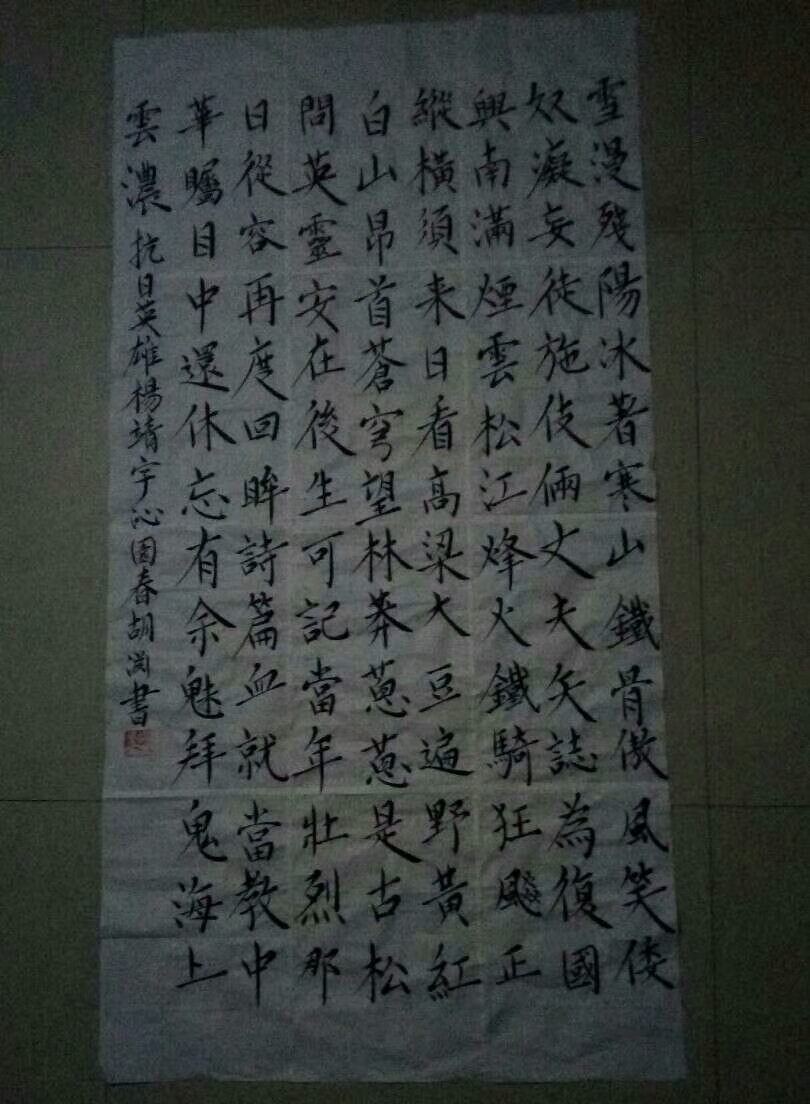 雪漫殘陽冰著寒山鐵骨傲風笑倭
奴癡妄徒施伎倆丈夫矢誌為復國
興南滿煙雲松江烽火鐵騎狂飈正
縱橫須来日看高梁大豆遍野黃紅
白山昂首蒼穹望林莽蔥蔥是古松
問英靈安在後生可記當年壯烈那
日從容再度回眸詩篇血就當教中
華矚目中還休忘有余魅拜鬼海上
雲濃抗日英雄楊靖宇沁園春胡渕書